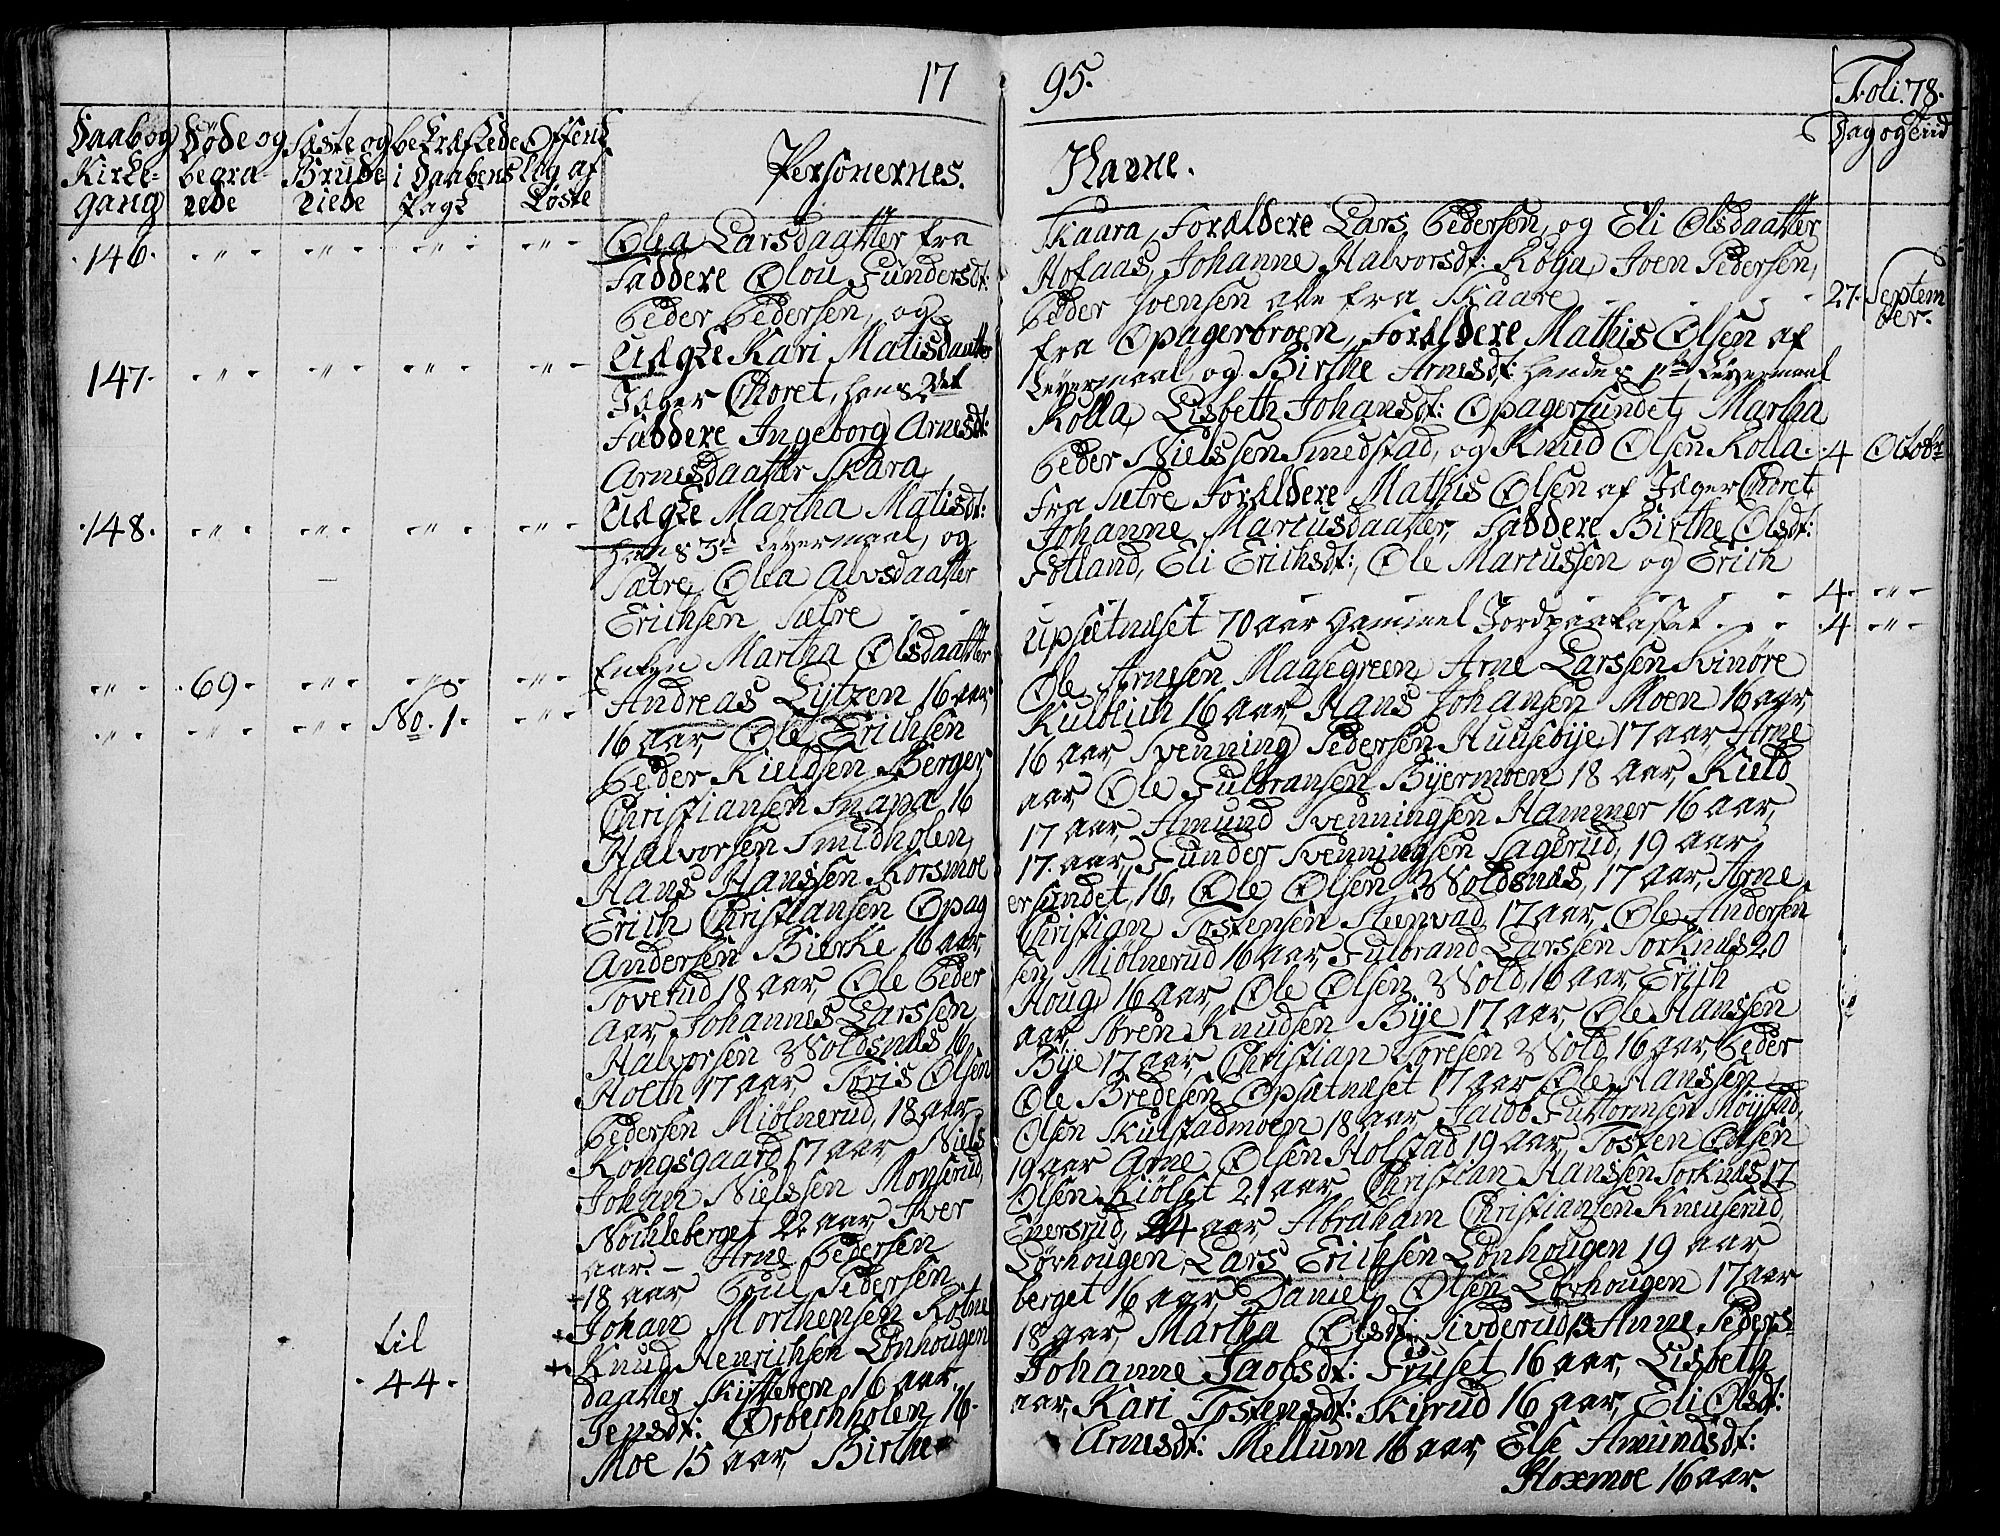 17 95. Foli. 78.
Daab og Kirke-gang
Døde og begravede
Fæste og Brudeviede
bekræftede i Daabens Pagt
Offentlig af Løste
Personernes. Navne.
Dag og Tiid
146. Olea Larsdaatter fra Skaara, Forældere Lars Pedersen, og Eli Olsdaatter
Faddere Olou Gundersdt: Hofaas, Johanne Halvorsdt: Kolja, Joen Pedersen,
Peder Pedersen, og Peder Joensen alle fra Skaare 27. September.
147. Uægte Kari Matisdaatter fra Opagerbroen, Forældere Mathis Olsen af
Jæger Choret, hans 2det Leyermaal, og Birthe Arnesdt: hendes 1ste Leyermaal
Faddere Ingeborg Arnesdt: Kolla, Lisbeth Johansdt: Opagersundet, Martha
Arnesdaatter Skara, Peder Nielssen Smedstad, og Knud Olsen Kolla. 4 Octobr
148. Uægte Martha Matisdt: fra Sætre Forældere Mathis Olsen af Jæger Choret
hans 3de Leyermaal, og Johanne Marcusdaatter, Faddere Birthe Olsdt:
Sætre, Olea Alvsdaatter Fotland, Eli Erichsdt:, Ole Marcussen og Erich
Erichsen Sætre 4.
69 Enken Martha Olsdaatter Upsætnæset 70 aar gammel Jordpaakastet 4
No. 1. Andreas Lytzen 16 aar, Ole Arnesen Magsegreen, Arne Larssen Svinøre
16 Aar, Ole Erichsen Kulblich 16 Aar, Hans Johansen Moen 16 aar,
Peder Kieldsen Berger, 16 aar, Svenning Pedersen Huusebye, 17 aar, Arne
Christiansen Snapa, 16 aar, Ole Gulbransen Byermoen 18 Aar, Kield
Halvorsen Smidholen, 17 aar, Amund Svenningsen Hammer 16 aar,
Hans Hanssen Korsmoe 17. aar, Gunder Svenningsen Sagerud, 19 aar
Erich Christiansen Opagersundet, 16, Ole Olsen Woldsnæs, 17 aar, Arne
Andersen Bierke 16 aar, Christian Tostensen Steenvad, 17 aar, Ole Andersen
Toverud, 18 aar, Ole Pedersen, Miølnerud 16 aar, Gulbrand Larssen Sorknæs 20
Aar, Johannes Larssen Houg, 16 aar, Ole Olsen Wold, 16 aar, Erich
Halvorsen Woldsnæs 16 aar, Søren Knudsen Bye 17 aar, Ole Hanssen
Holth 17 aar, Toris Olsen Bye 17 aar, Christian Toresen Wold, 16 aar, Peder
Pedersen Miølnerud, 18 aar Ole Bredesen Opsætnæset 17 aar Ole Hanssen
Kongsgaard 17 aar Niels Olsen Skulstadmoen 18 aar, Jacob Guttormsen Møystad,
Johan Nielssen Monserud, 19 aar Arne Olsen Holstad 19 aar, Tosten Olsen
Nöchleberget 22 aar Iver Olsen Kiølset 21 aar, Christian Hanssen Sorknæs 17
aar. - Arne Pedersen Enersrud, 24 aar, Abraham Christiansen Kneuserud,
18 aar, Poul Pedersen Lørhougen, Lars Erichsen Lønhougen 19 aar
Johan Morthensen Kotneberget 16 aar, Daniel Olsen Lørhougen 17 aar
Knud Henrichsen Lønhougen 18 aar, Martha Olsdt: Sivderud, 15 Anne Peders-
til daatter Skytteren, 16 aar, Johanne Jacobsdt: Fryset 16 aar, Lisbeth
44. Jensdt: Orberhholen 16. aar, Kari Tostensdt: Skyrud 16 aar, Eli Olsdt:
Moe 15 aar, Birthe Arnesdt: Mellum 16 aar, Else Amundsdt:
Kloxmoe 16 aar.